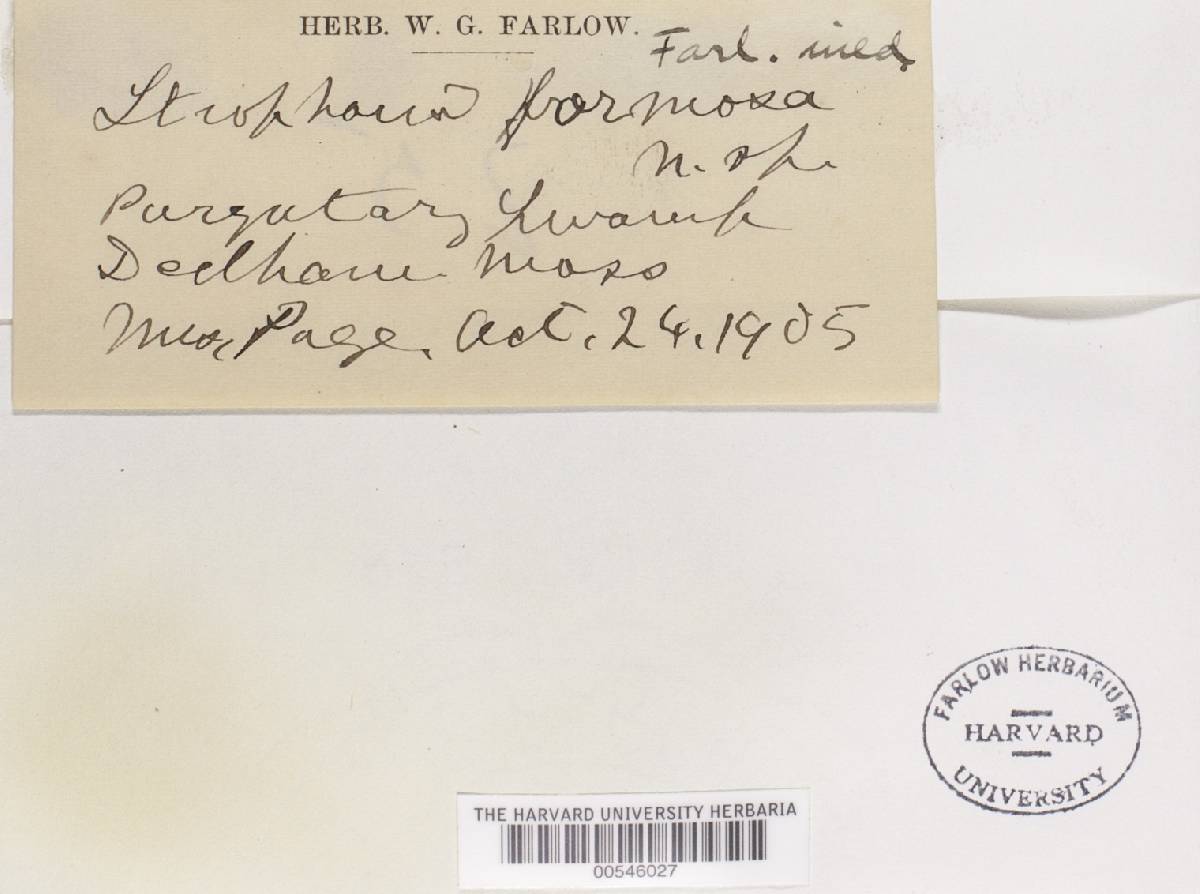 HERB. W. G. FARLOW.
Farl. ined.
Stropharia formosa
n. sp.
Purgatory Swamp
Dedham Mass
Mrs. Page. Oct. 24. 1905
FARLOW HERBARIUM
HARVARD
UNIVERSITY
THE HARVARD UNIVERSITY HERBARIA
00546027